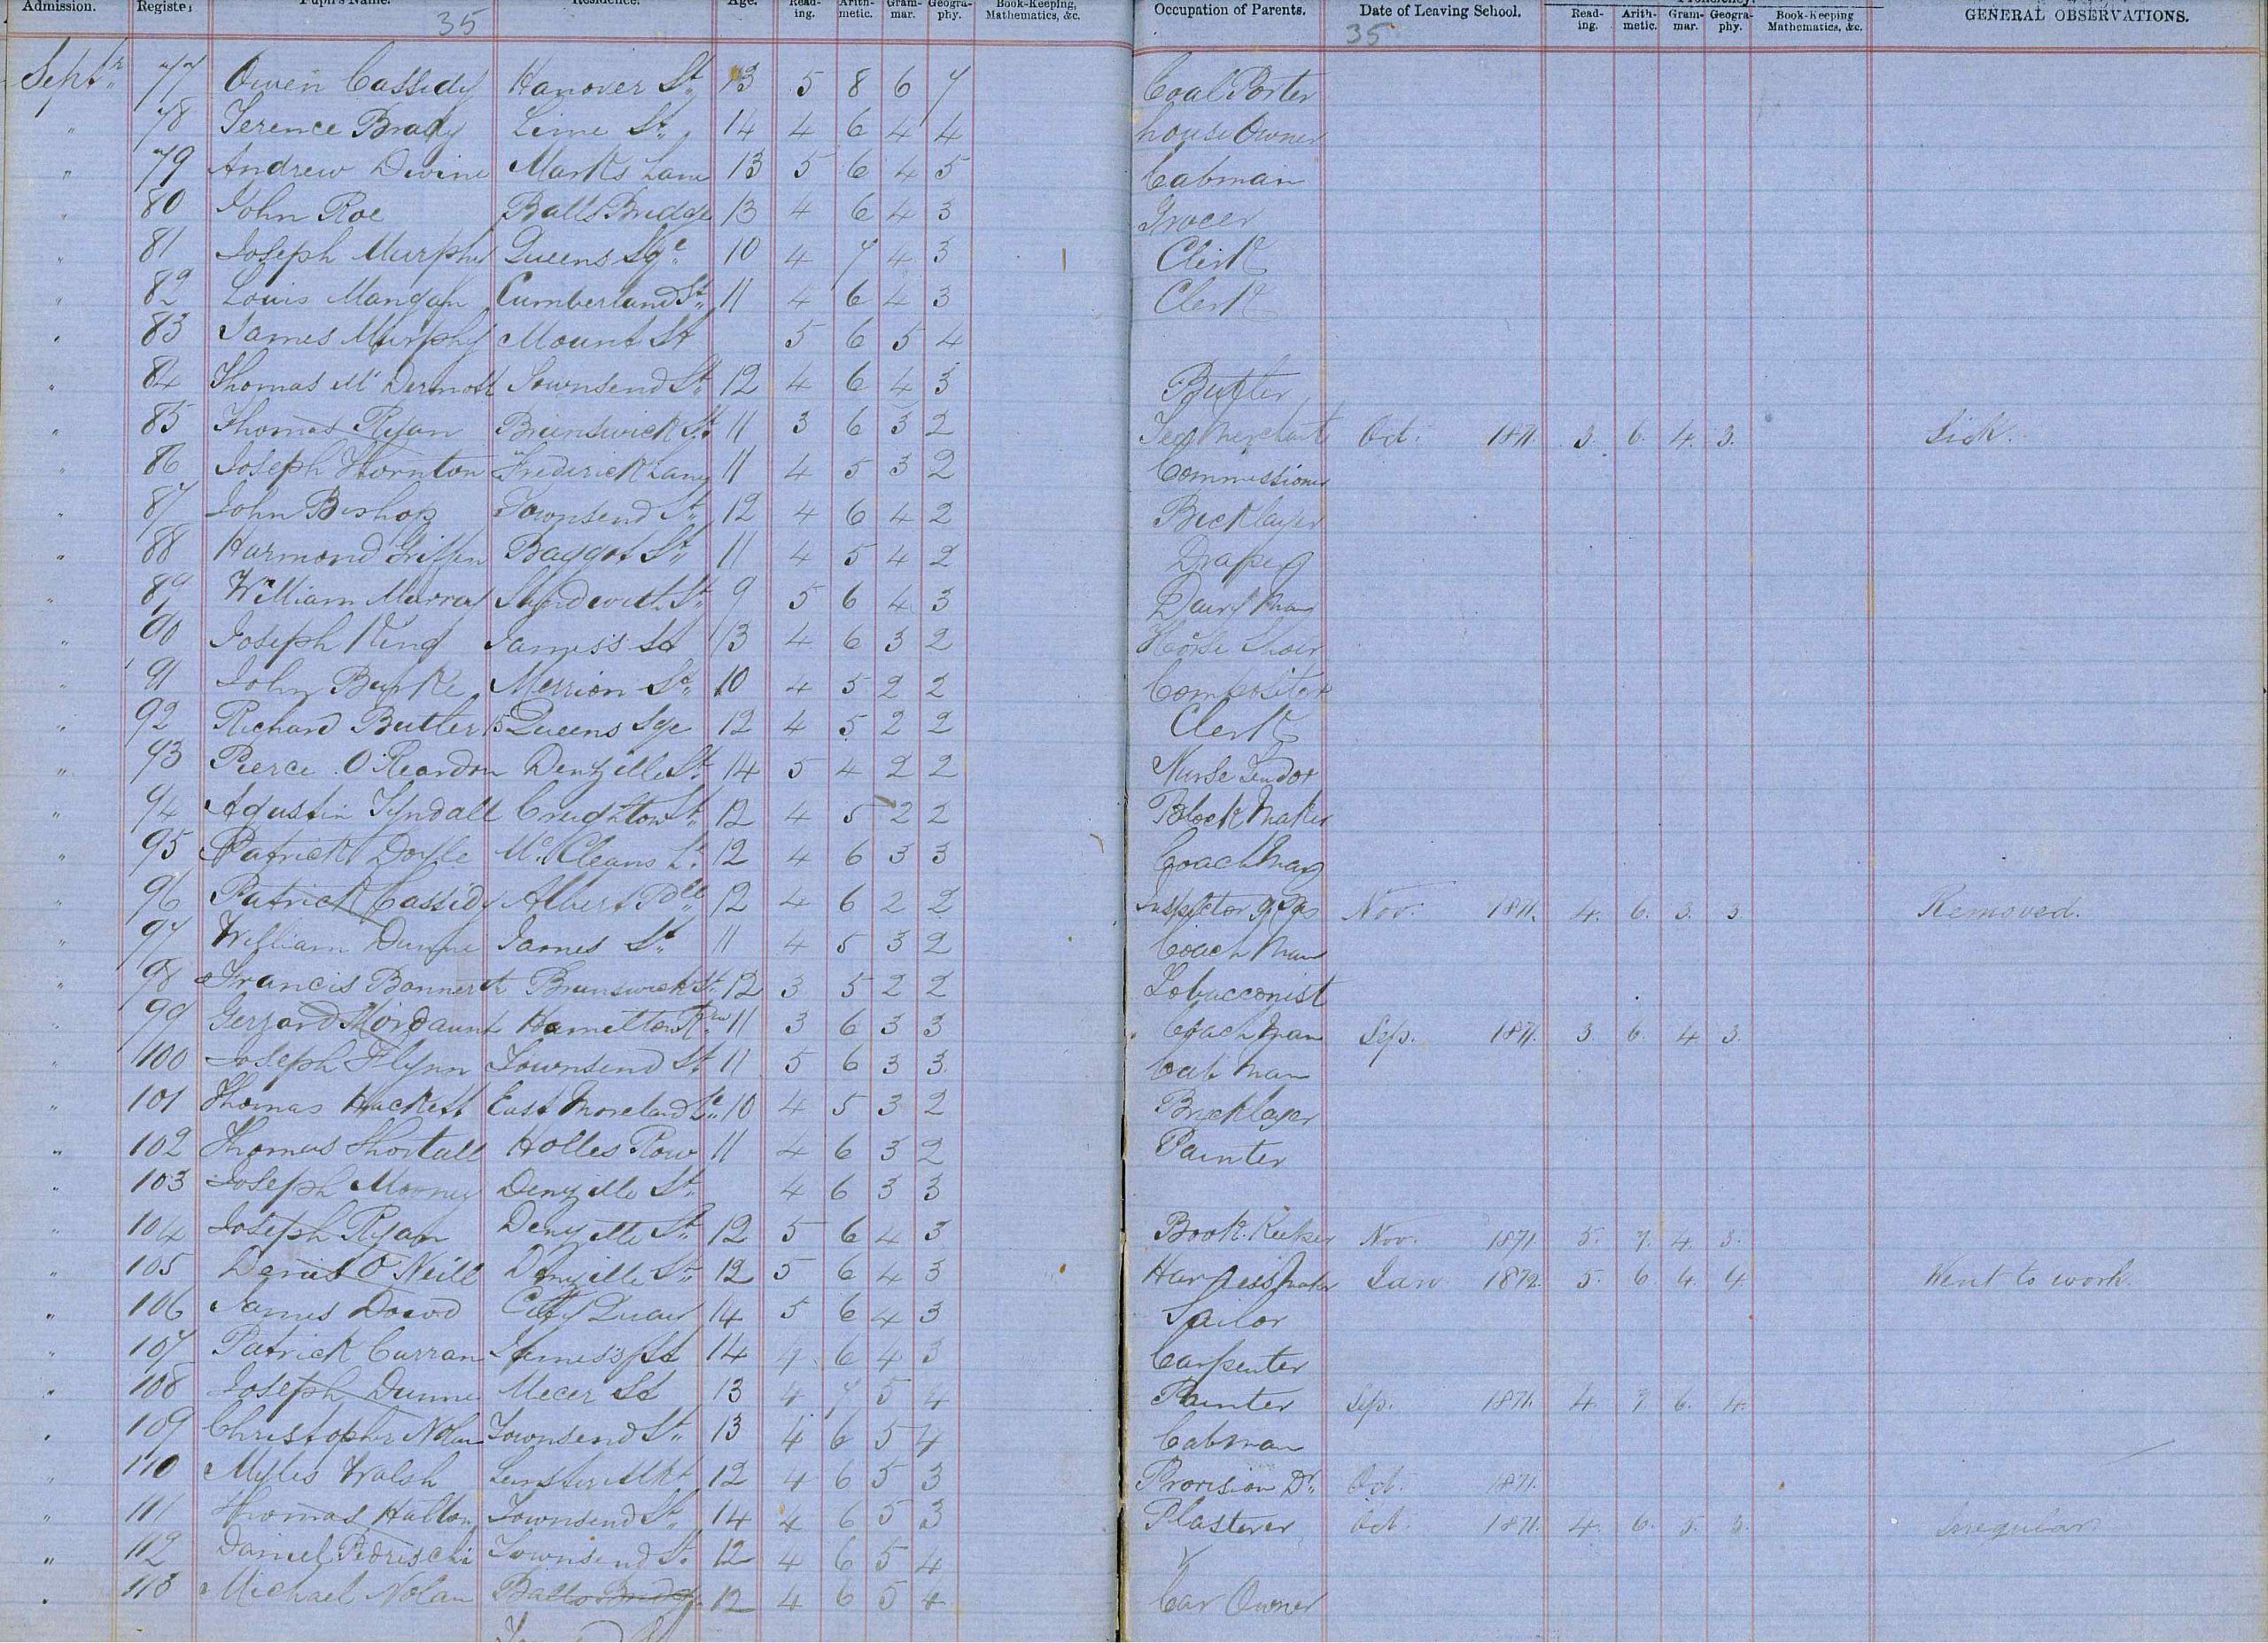 Admission. Register Pupil's Name. Residence. Age. Read-ing. Arith-metic. Gram-mar. Geogra-phy. Book-Keeping, Mathematics, &c. Occupation of Parents. Date of Leaving School. Read-ing. Arith-metic. Gram-mar. Geogra-phy. Book-Keeping Mathematics, &c. GENERAL OBSERVATIONS.
35 35
Septr 77 Owen Cassidy Hanover St. 13 5 8 6 7 Coal Porter
" 78 Terence Brady Lime St. 14 4 6 4 4 house Owner
" 79 Andrew Devine Marks Lane 13 5 6 4 5 Cabman
" 80 John Roe Balls Bridge 13 4 6 4 3 Grocer
" 81 Joseph Murphy Queens Sqe 10 4 7 4 3 Clerk
" 82 Louis Mangan Cumberland St. 11 4 6 4 3 Clerk
" 83 James Murphy Mount St 5 6 5 4
" 84 Thomas Mc Dermott Townsend St. 12 4 6 4 3 Butler
" 85 Thomas Ryan Brunswick St. 11 3 6 3 2 Tea Merchant Oct. 1871. 3. 6. 4. 3. Sick.
" 86 Joseph Thornton Frederick Lane 11 4 5 3 2 Commissioner
" 87 John Bishop Townsend St. 12 4 6 4 2 Bricklayer
" 88 Harmond Griffin Baggot St. 11 4 5 4 2 Draper
" 89 William Murray St. 9 5 6 4 3 Dairy Man
" 90 Joseph King James's St 13 4 6 3 2 Horse Shoer
" 91 John Burke Merrion St. 10 4 5 2 2 Compositor
" 92 Richard Butler 15 Queens Sqe 12 4 5 2 2 Clerk
" 93 Pierce O'Reardon Denzille St. 14 5 4 2 2 Nurse Tendor
" 94 Agustin Tyndall Creighton St. 12 4 5 2 2 Block Maker
" 95 Patrick Doyle McCleans Le 12 4 6 3 3 Coach Man
" 96 Patrick Cassidy Albert Plce 12 4 6 2 2 Inspector of Nov. 1871. 4. 6. 3. 3 Removed.
" 97 William Dunne James St. 11 4 5 3 2 Coach Man
" 98 Francis Bonner Brunswick St. 12 3 5 2 2 Tobacconist
" 99 Gerrard Mordaunt Hamilton Row 11 3 6 3 3 Coach Man Sep. 1871. 3. 6. 4. 3.
" 100 Joseph Flynn Townsend St. 11 5 6 3 3 Cab Man
" 101 Thomas Hackett East Moreland Le 10 4 5 3 2 Bricklayer
" 102 Thomas Shortall Holles Row 11 4 6 3 2 Painter
" 103 Joseph Mooney Denzille St. 4 6 3 3
" 104 Joseph Ryan Denzille St. 12 5 6 4 3 Book-Keeper Nov. 1871 5. 7. 4. 3.
" 105 Denis O'Neill Denzille St. 12 5 6 4 3 Harness Maker Jan 1872. 5. 6. 4. 4 Went to work.
" 106 James Dowd City Quay 14 5 6 4 3 Sailor
" 107 Patrick Curran James's St 14 4 6 4 3 Carpenter
" 108 Joseph Dunne Mecer St 13 4 7 5 4 Painter Sep. 1871. 4. 7. 6. 4.
" 109 Christopher Nolan Townsend St. 13 4 6 5 4 Cabman
" 110 Myles Walsh Leinster Mkt 12 4 6 5 3 Provision Dr. Oct. 1871.
" 111 Thomas Halton Townsend St. 14 4 6 5 3 Plasterer Oct. 1871. 4. 6. 5. 3. Irregular
" 112 Daniel Pedreschi Townsend St. 12 4 6 5 4
" 113 Michael Nolan Balls Bridge 12 4 6 5 4 Car Owner